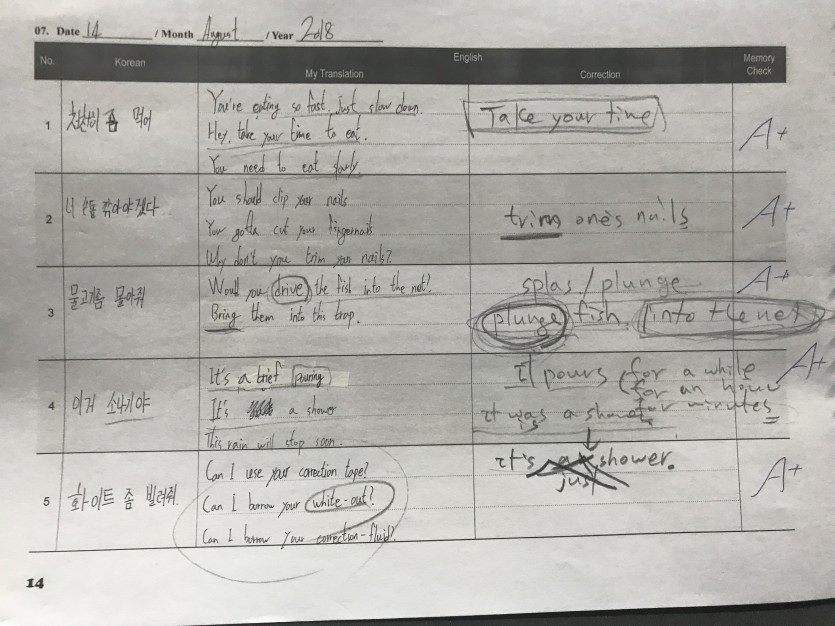 07. Date 14 / Month August / Year 2018
No. Korean English Memory Check
My Translation Correction
1 천천히 좀 먹어
You're eating so fast. Just slow down.
Hey, take your time to eat.
You need to eat slowly.
Take your time
A+
2 너 손톱 깎아야겠다
You should clip your nails
You gotta cut your fingernails
Why don't you trim your nails?
trim one's nails
A+
3 물고기좀 몰아줘
Would you drive the fish into the net?
Bring them into this trap.
splas / plunge
plunge fish into the net
A+
4 이거 소나기야
It's a brief pouring
It's a shower
This rain will stop soon.
it pours for a while
for an hour
for minutes
it was a shower
is
A+
5 화이트 좀 빌려줘
Can I use your correction tape?
Can I borrow your white-out?
Can I borrow your correction-fluid?
it's a shower.
just
A+
14